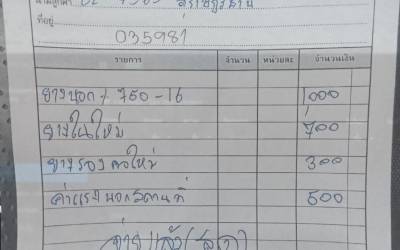 นามลูกค้า
ที่อยู่
035981
รายการ จำนวน หน่วยละ จำนวนเงิน
ยางนอก 1 750-16 1,000
ยางในใหม่ 700
ยางรองคอใหม่ 300
ค่าแรงนอกสถานที่ 500
จ่ายแล้ว (สด)